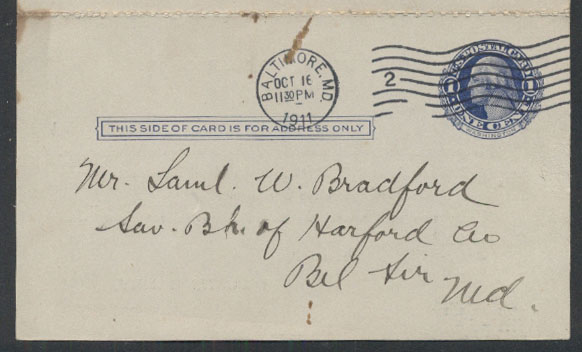 BALTIMORE, MD.
OCT 16
11 30 PM
1911
2
U.S. POSTAL CARD
1 1
ONE CENT
WASHINGTON
THIS SIDE OF CARD IS FOR ADDRESS ONLY
Mr. Saml. W. Bradford
Sav. Bk. of Harford Co
Bel Air
Md.